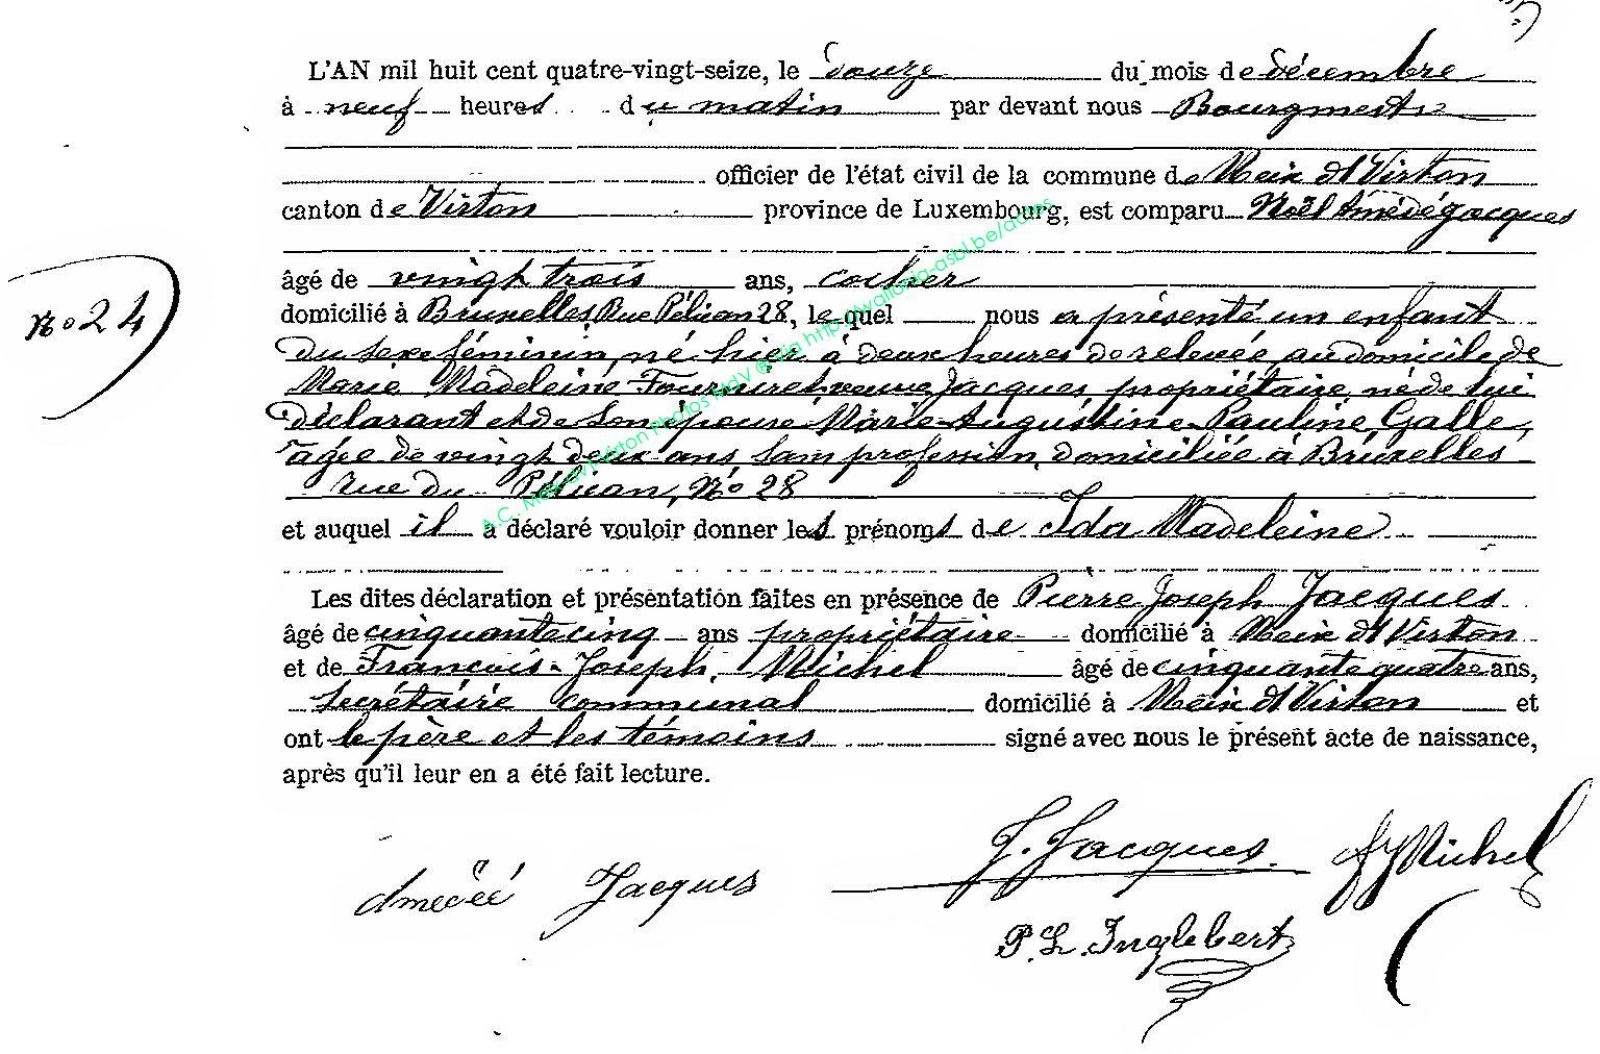 L'AN mil huit cent quatre-vingt-seize, le douze du mois de décembre
à neuf heures du matin par devant nous Bourgmestre
officier de l'état civil de la commune de Meix dt Virton
canton de Virton province de Luxembourg, est comparu Noël Amédé Jacques
âgé de vingt trois ans, cocher
domicilié à Bruxelles, Rue Pélican 28, lequel nous a présenté un enfant
n° 24
du sexe féminin, né hier à deux heures de relevée, au domicile de
Marie Madeleine Fourniret veuve Jacques, propriétaire, né de lui
déclarant et de son épouse Marie Augustine Pauline Galle,
âgée de vingt deux ans, sans profession, domiciliée à Bruxelles
rue du Pélican, N° 28
et auquel il a déclaré vouloir donner les prénoms de Ida Madeleine
Les dites déclaration et présentation faites en présence de Pierre Joseph Jacques
âgé de cinquante cinq ans propriétaire domicilié à Meix dt Virton
et de François-Joseph Michel âgé de cinquante quatre ans,
secrétaire communal domicilié à Meix dt Virton et
ont le père et les témoins signé avec nous le présent acte de naissance,
après qu'il leur en a été fait lecture.
J. Jacques. FJ Michel
Amédée Jacques
P. L. Inglebert